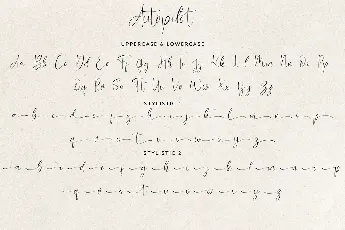 Autopilot
UPPERCASE & LOWERCASE
Aa Bb Cc Dd Ee Ff Gg Hh Ii Jj Kk Ll Mm Nn Oo Pp
Qq Rr Ss Tt Uu Vv Ww Xx Yy Zz
a b c d e f g h i j k l m n o p
q r s t u v w x y z
STYLISTIC 2
a b c d e f g h i j k l m n o p
q r s t u v w x y z